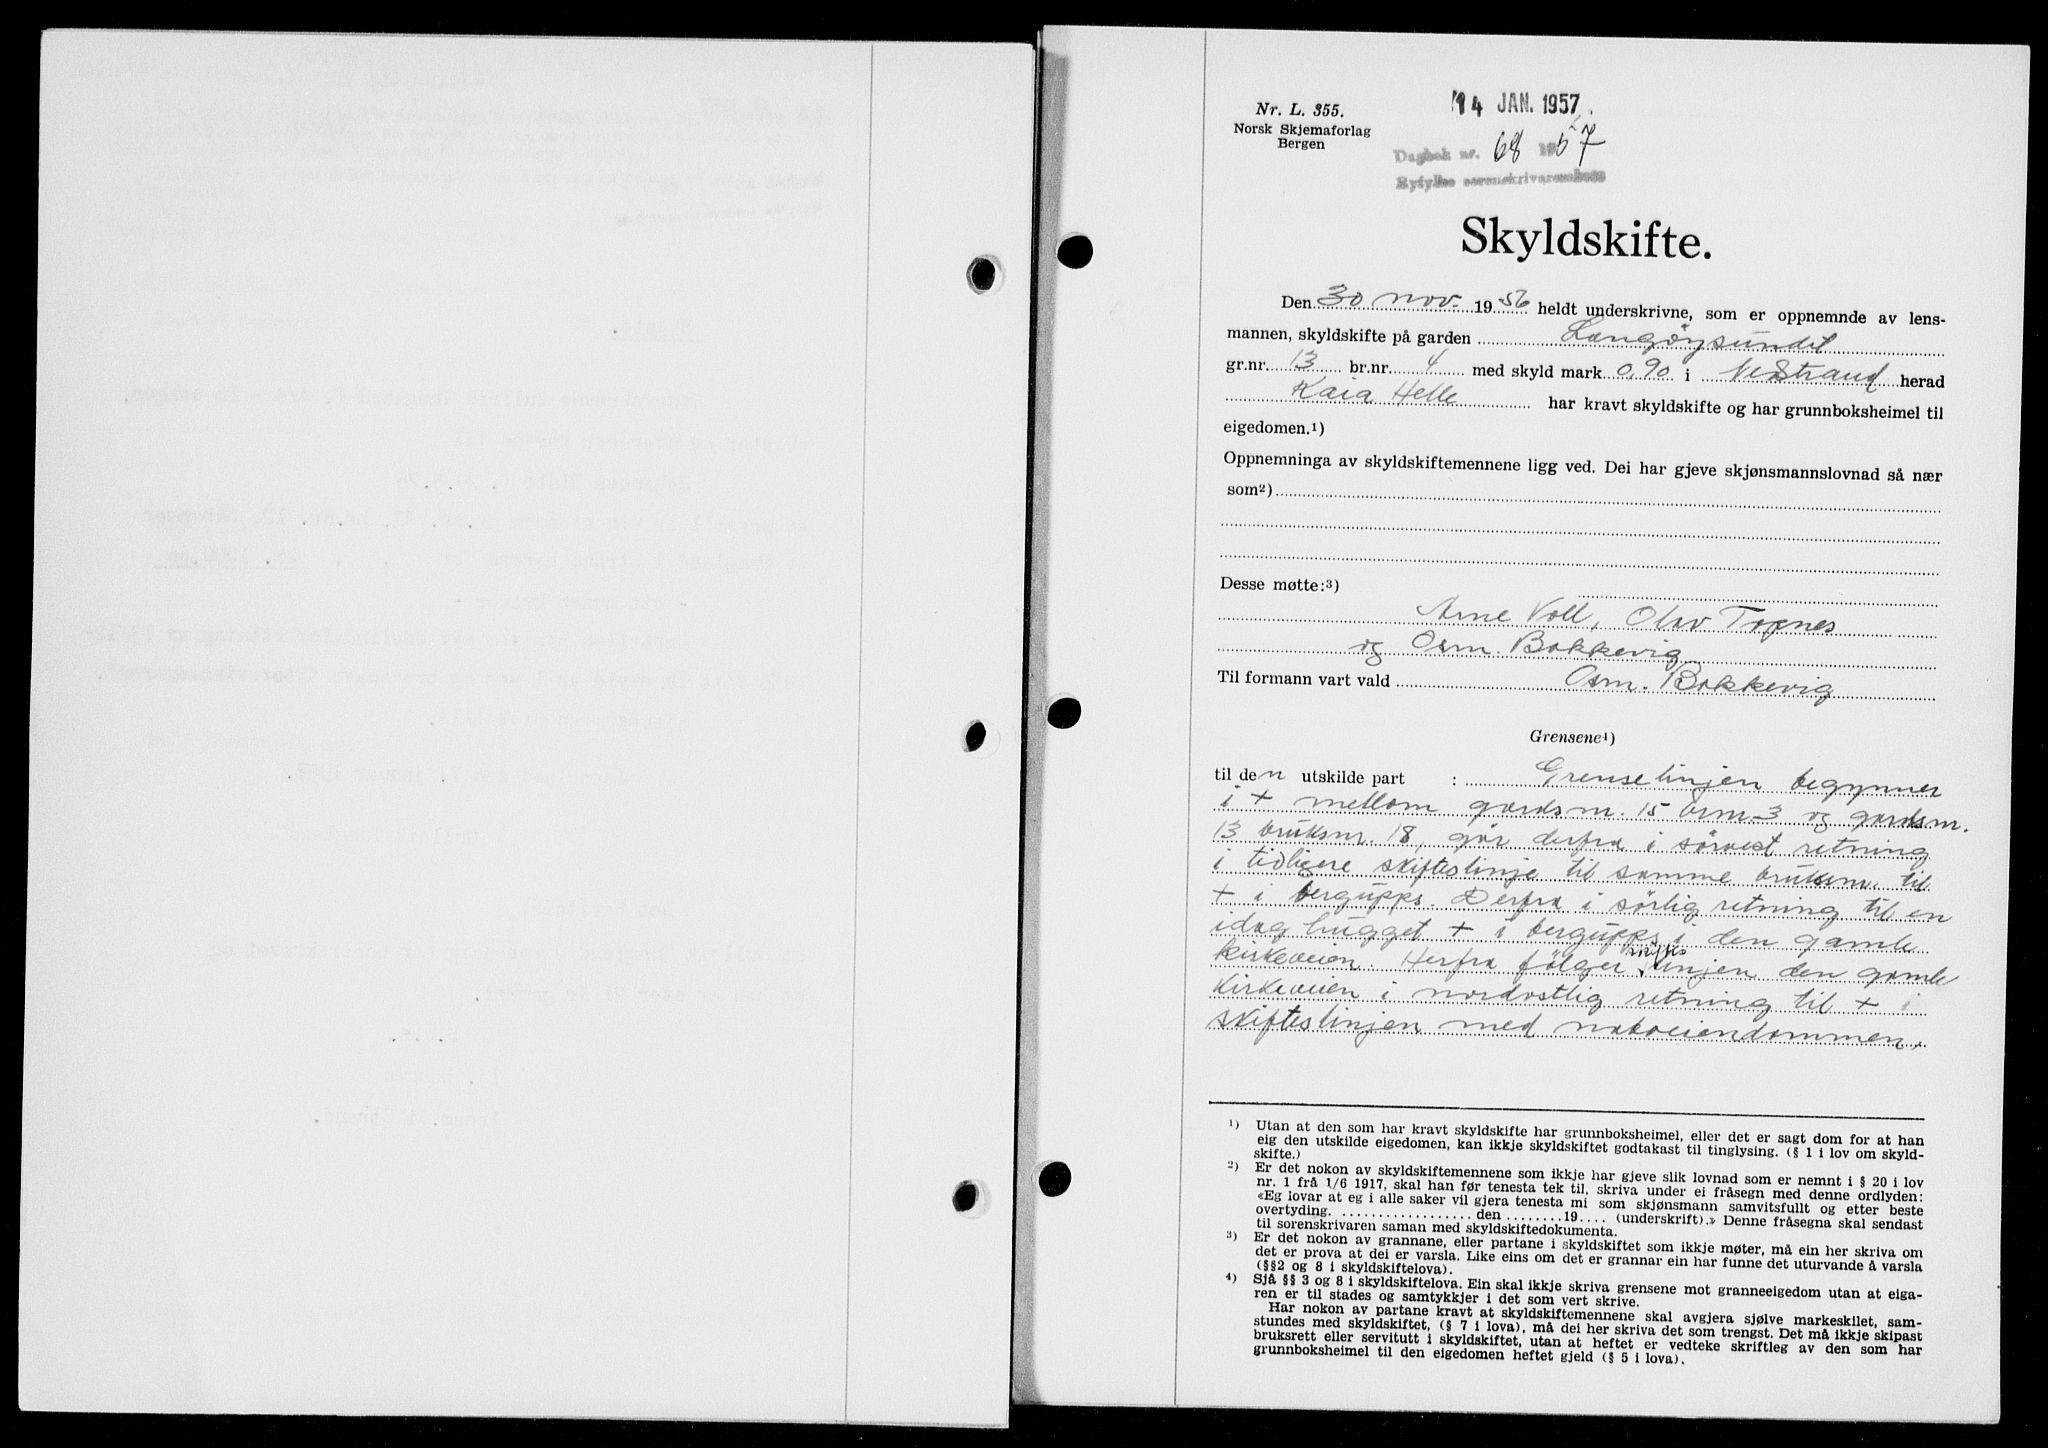 Nr. L. 355.
Norsk Skjemaforlag
Bergen
14 JAN. 1957
Dagbok nr. 68 1957
Ryfylke sorenskrivarembete
Skyldskifte.
Den 30 nov. 1956 heldt underskrivne, som er oppnemnde av lens-
mannen, skyldskifte på garden Langöysundet
gr.nr. 13 br.nr. 4 med skyld mark 0,90 i Nedstrand herad
Kaia Helle har kravt skyldskifte og har grunnboksheimel til
eigedomen.¹)
Oppnemninga av skyldskiftemennene ligg ved. Dei har gjeve skjønsmannslovnad så nær
som²)
Desse møtte:³)
Arne Voll, Olav Tognes
og Osm. Bokkevig
Til formann vart vald Osm. Bokkevig
Grensene⁴)
til den utskilde part : Grenselinjen begynner
i + mellom gårdsnr. 15 brnr 3 og gårdsnr.
13 bruksnr. 18, går derfra i sörvest retning
i tidligere skifteslinje til samme bruksnr. til
+ i berguppς. Derfra i sörlig retning til en
idag hugget + i bergupps i den gamle
kirkeveien. Herfra fölger skiftes linjen den gamle
kirkeveien i nordostlig retning til + i
skifteslinjen med naboeiendommen.
¹) Utan at den som har kravt skyldskifte har grunnboksheimel, eller det er sagt dom for at han
eig den utskilde eigedomen, kan ikkje skyldskiftet godtakast til tinglysing. (§ 1 i lov om skyld-
skifte.)
²) Er det nokon av skyldskiftemennene som ikkje har gjeve slik lovnad som er nemnt i § 20 i lov
nr. 1 frå 1/6 1917, skal han før tenesta tek til, skriva under ei fråsegn med denne ordlyden:
«Eg lovar at eg i alle saker vil gjera tenesta mi som skjønsmann samvitsfullt og etter beste
overtyding. .................. den ........19.... (underskrift).» Denne fråsegna skal sendast
til sorenskrivaren saman med skyldskiftedokumenta.
³) Er det nokon av grannane, eller partane i skyldskiftet som ikkje møter, må ein her skriva om
det er prova at dei er varsla. Like eins om det er grannar ein har funne det uturvande å varsla
(§§2 og 8 i skyldskiftelova).
⁴) Sjå §§ 3 og 8 i skyldskiftelova. Ein skal ikkje skriva grensene mot granneeigedom utan at eiga-
ren er til stades og samtykkjer i det som vert skrive.
Har nokon av partane kravt at skyldskiftemennene skal avgjera sjølve markeskilet, sam-
stundes med skyldskiftet, (§ 7 i lova), må dei her skriva det som trengst. Det må ikkje skipast
bruksrett eller servitutt i skyldskiftet, utan at heftet er vedteke skriftleg av den som har
grunnboksheimel til den eigedomen heftet gjeld (§ 5 i lova).